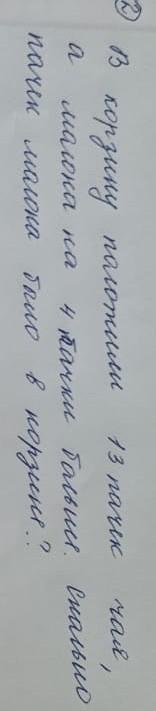 2
В корзину положили 13 пачек чая,
а малока на 4 пачки больше. Скалько
пачик малока было в корзине?